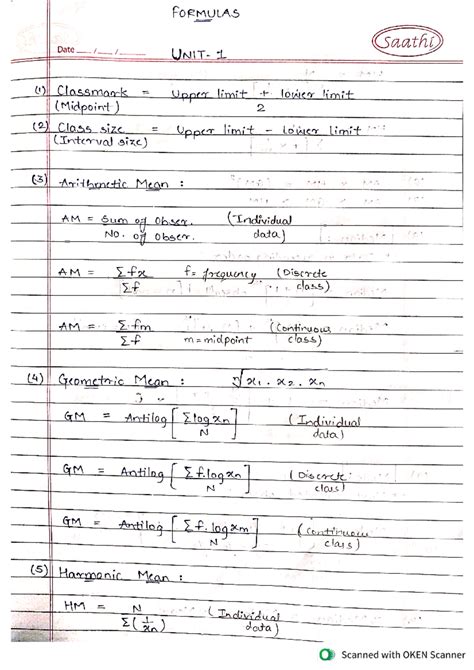 FORMULAS
Saathi
Date __/__/__
UNIT-1
(1) Classmark = Upper limit + lower limit
(Midpoint) 2
(2) Class size = Upper limit - lower limit
(Interval size)
(3) Arithmetic Mean :
AM = Sum of Obser. (Individual
No. of Obser. data)
AM = Σfx f = frequency (Discrete
Σf class)
AM = Σfm (Continuous
Σf m = midpoint class)
(4) Geometric Mean : √x₁ . x₂ . xn
GM = Antilog [Σlog xn] (Individual
N data)
GM = Antilog [Σf.log xn] (Discrete
N class)
GM = Antilog [Σf.log xm] (Continuous
N class)
(5) Harmonic Mean :
HM = N (Individual
Σ(1/xn) data)
Scanned with OKEN Scanner